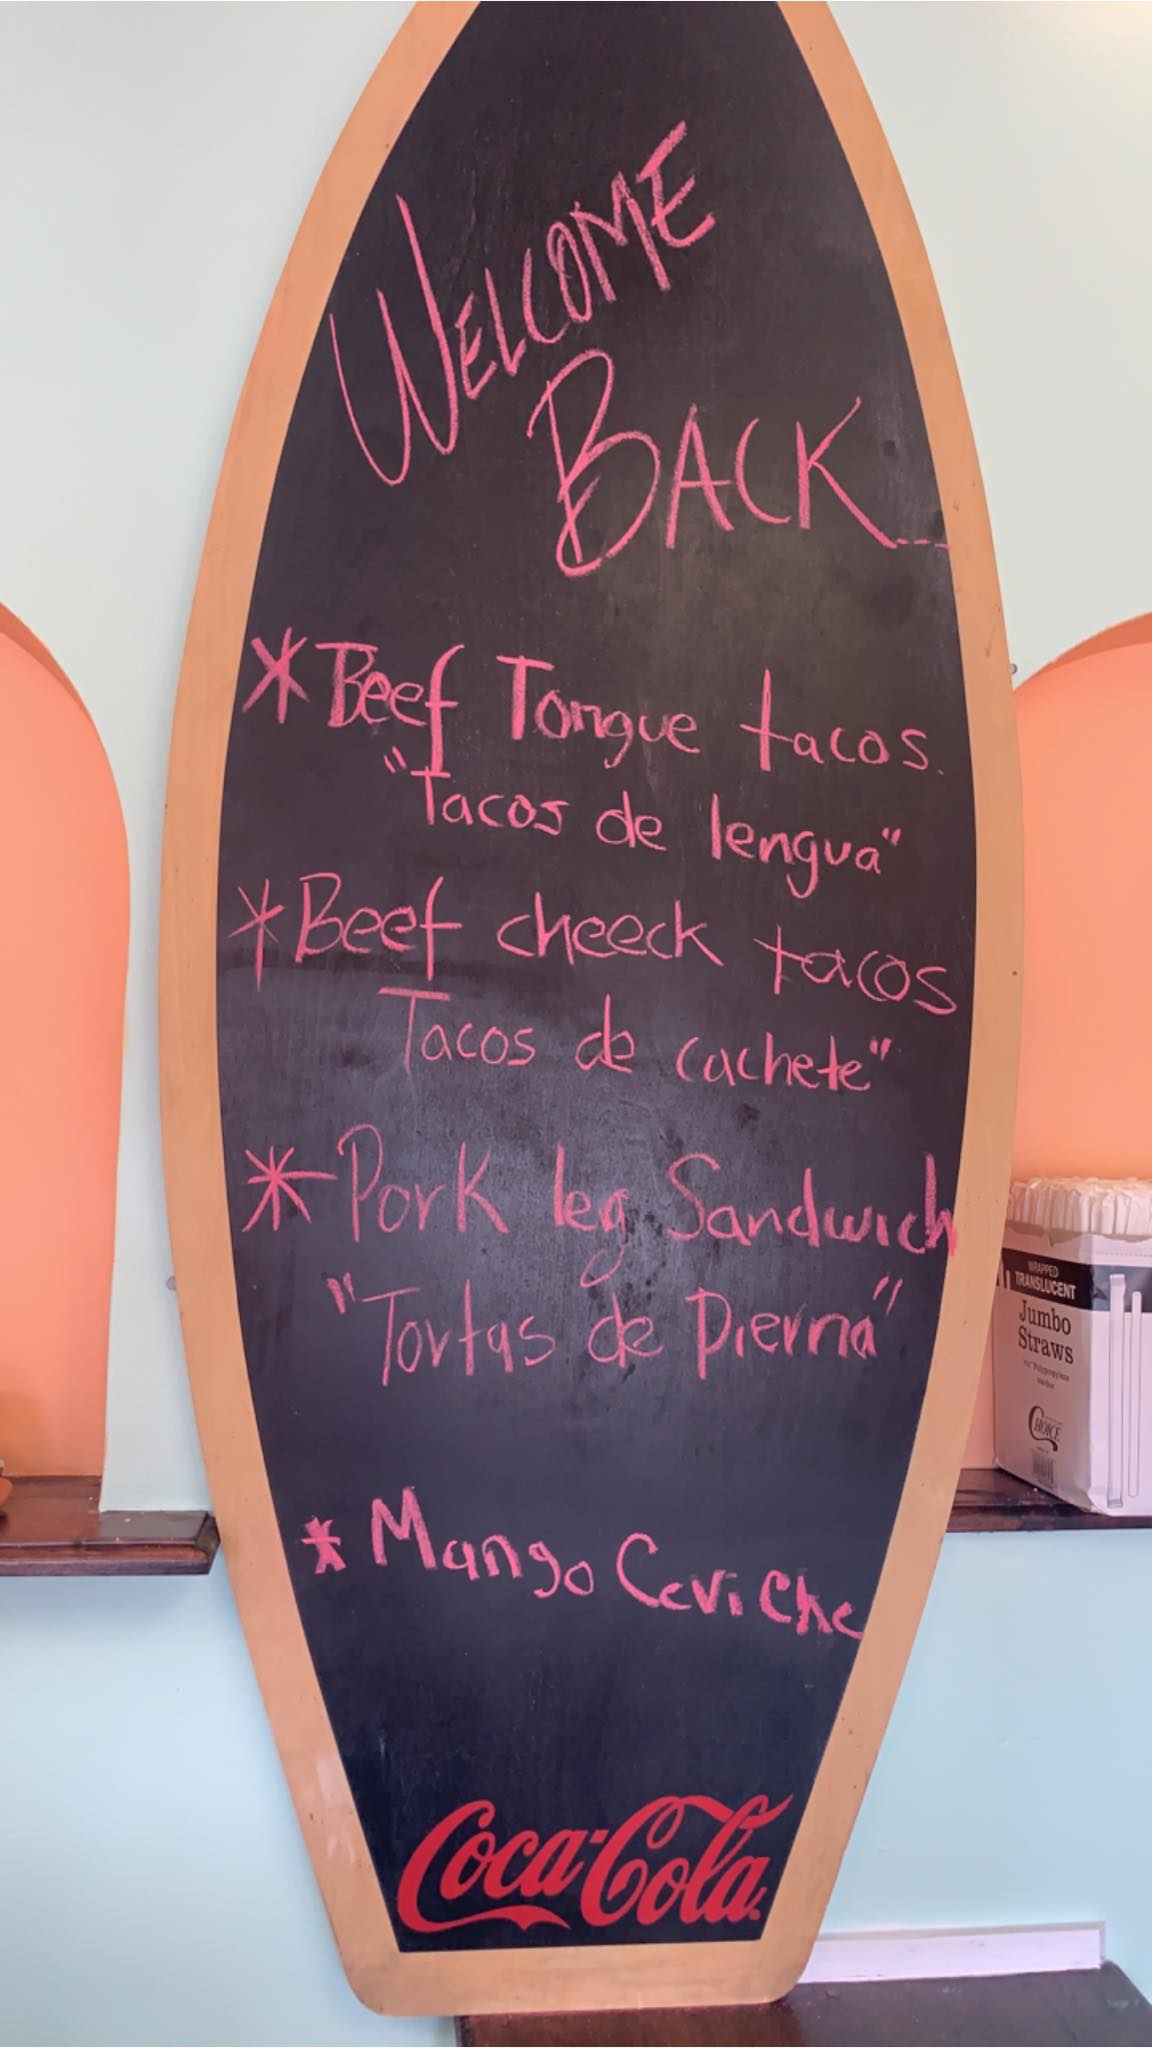 WELCOME
BACK...
*Beef Tongue tacos.
"Tacos de lengua"
*Beef cheeck tacos
Tacos de cachete"
*Pork leg Sandwich
"Tortas de Pierna"
*Mango Ceviche
Coca-Cola
WRAPPED
TRANSLUCENT
Jumbo
Straws
CHOICE